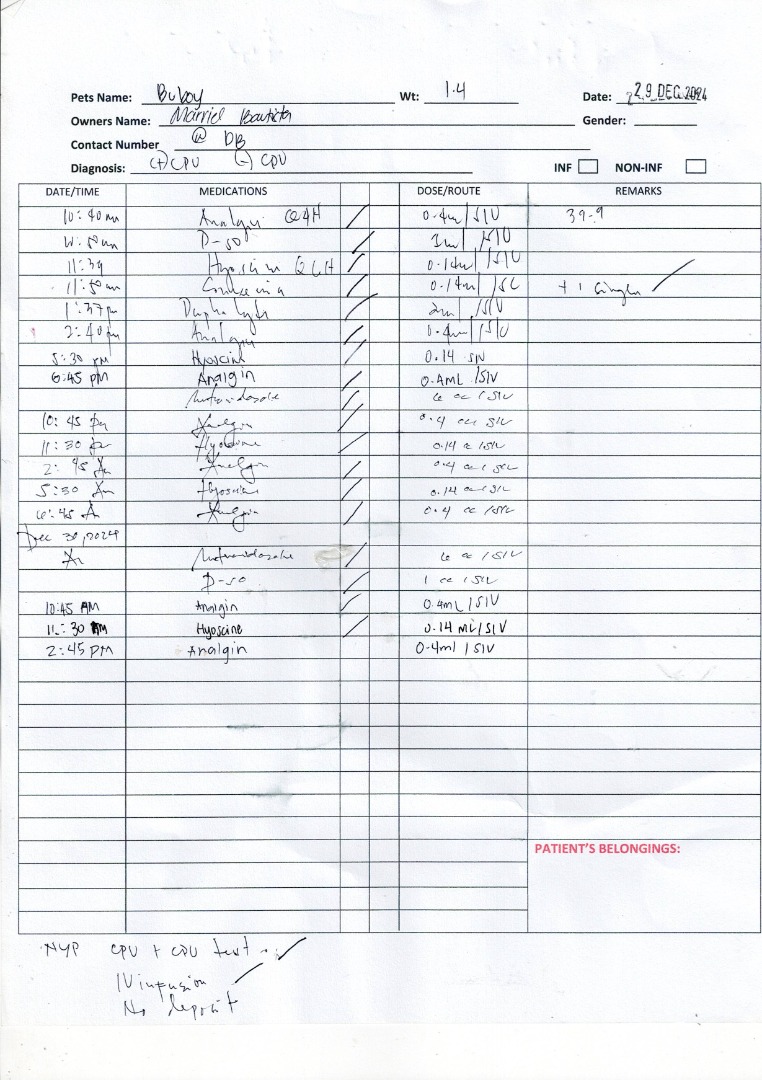 Pets Name: Buboy Wt: 1.4 Date: 29 DEC 2024
Owners Name: Marriel Bautista Gender:
Contact Number @ DB
Diagnosis: (+) CPV (-) CDV INF NON-INF
DATE/TIME MEDICATIONS DOSE/ROUTE REMARKS
10:40 am Analgin Q4H 0.4ml/SIV 39.9
D-50 1ml/SIV
11:39 Hyoscine Q6H 0.14ml/SIV
11:50 am 0.14ml/SC + 1
1:37 pm 2ml/SIV
2:40 pm Analgin 0.4ml/SIV
5:30 pm Hyoscine 0.14 SIV
6:45 pm Analgin 0.4mL/SIV
Metronidazole cc/SIV
10:45 pm Analgin 0.4 cc SIV
11:30 pm Hyoscine 0.14 cc/SIV
2:45 Am Analgin 0.4 cc
5:30 Am Hyoscine 0.14 cc/SIV
6:45 A Analgin 0.4 cc/SIV
Dec 30, 2024
Am Metronidazole cc/SIV
D-50 1 cc/SIV
10:45 AM Analgin 0.4mL/SIV
11:30 AM Hyoscine 0.14 ml/SIV
2:45 PM Analgin 0.4ml/SIV
PATIENT'S BELONGINGS:
NYP CPV + CDV test
IV infusion
No deposit